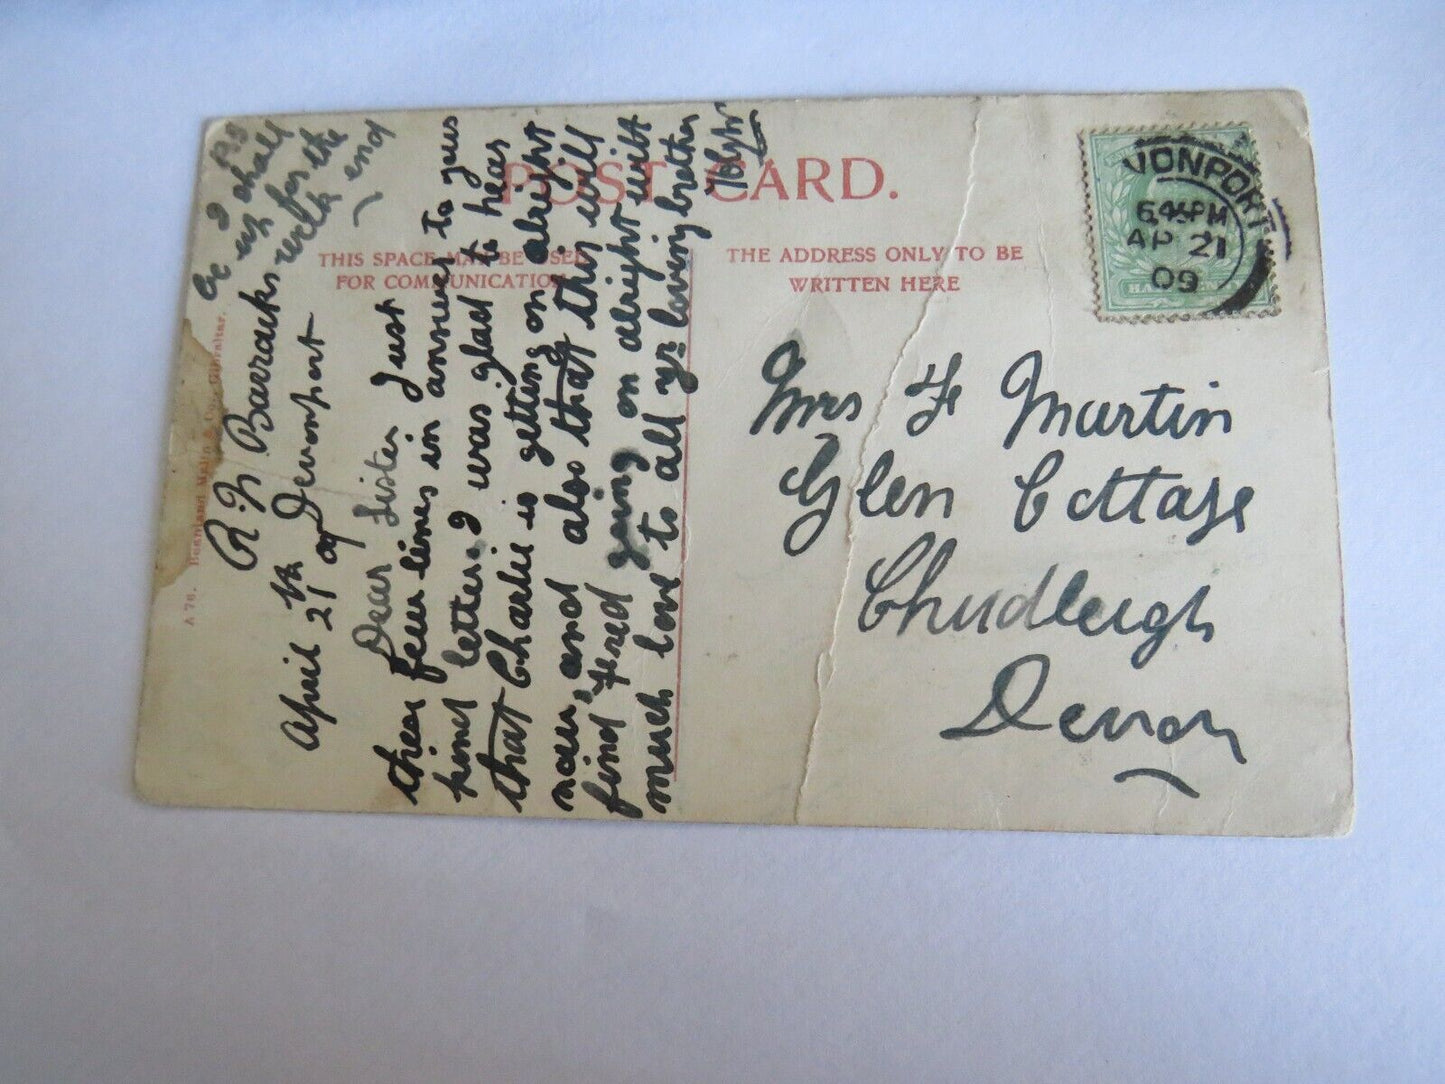 POST CARD.
THIS SPACE MAY BE USED
FOR COMMUNICATION
THE ADDRESS ONLY TO BE
WRITTEN HERE
VONPORT
6.45PM
AP 21
09
A 76. Beanland Malin & Co., Gibraltar.
PS
I shall
be up for the
week end
R. N Barracks
Devonport
April 21st 09
Dear Sister Just
these few lines in answer to your
kind letter. I was glad to hear
that Charlie is getting on alright
now, and also that this will
find Fred going on alright with
much love to all yr loving brother
Mrs F Martin
Glen Cottage
Chudleigh
Devon